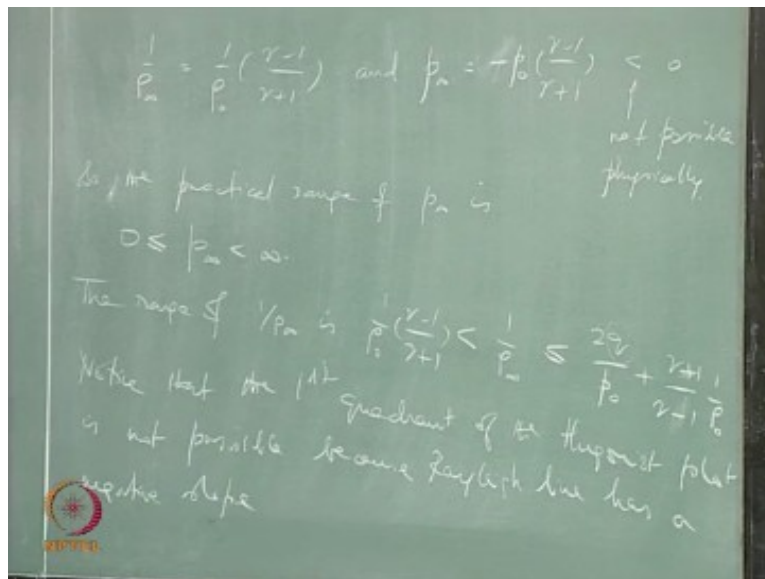 1/ρ∞ = 1/ρ₀ (γ-1/γ+1) and p∞ = -p₀ (γ-1/γ+1) < 0
not possible
physically.
So, the practical range of p∞ is
0 ≤ p∞ < ∞.
The range of 1/ρ∞ is 1/ρ₀ (γ-1/γ+1) < 1/ρ∞ ≤ 2q/p₀ + γ+1/γ-1 1/ρ₀
Notice that the 1st quadrant of the Hugoniot plot
is not possible because Rayleigh line has a
negative slope
NPTEL